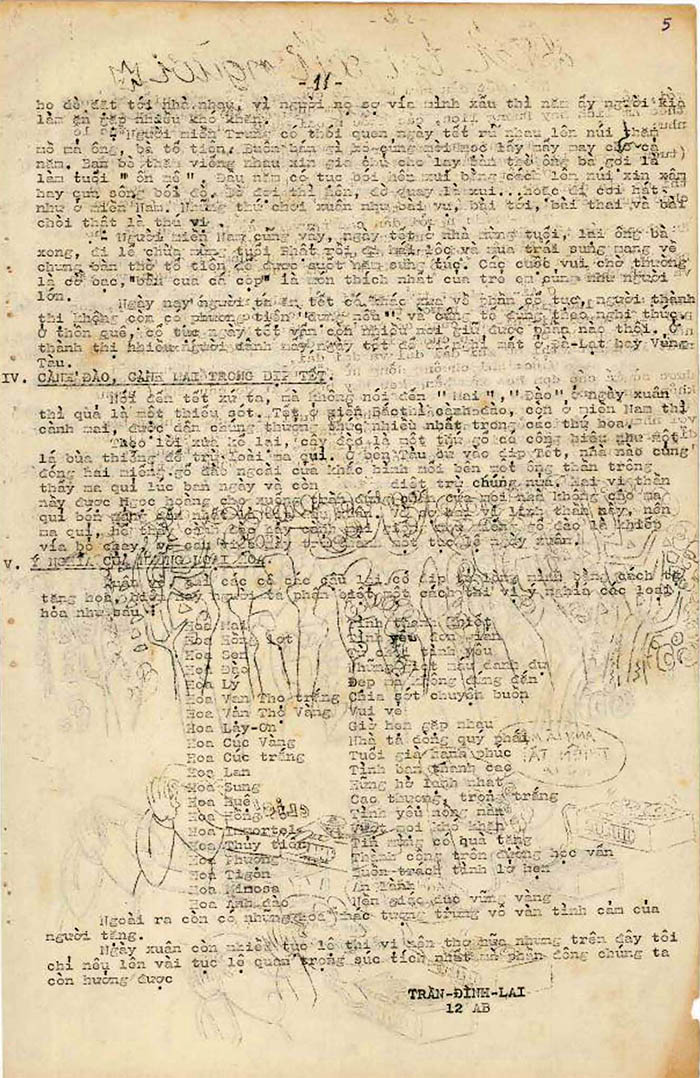 5
- 11 -
họ dè dặt tới nhà nhau, vì người nọ sợ vía mình xấu thì năm ấy người kia
làm ăn gặp nhiều khó khăn.
- Người miền Trung có thói quen ngày tết rủ nhau lên núi thăm
mồ mả ông, bà tổ tiên. Buôn bán gì họ cũng mở lấy may cho cả
năm. Bạn bè thăm viếng nhau xin gia chủ cho lạy bàn thờ ông bà gọi là
làm tuổi " ôn mệ " đầu năm có tục bói hên xui bằng cách lên núi xin xăm
hay qua sông bói đò. Bè đợi thì hên, đò quay là xui...hoặc đi coi hát
như ở miền Nam. Những thú chơi xuân như bài vụ, bài tới, bài thai và bài
chòi thật là thú vị.
- Người miền Nam cũng vậy, ngày tết ở nhà mừng tuổi, lại ông bà
xong, đi lễ chùa mừng tuổi Phật rồi đi hái lộc và mua trái sung mang về
chưng bàn thờ tổ tiên để được suốt năm sung túc. Các cuộc vui chơ thường
là cờ bạc, "bầu cua cá cọp" là môn thích nhất của trẻ em cũng như người
lớn.
Ngày nay người ta ăn tết có khác xưa về phần cổ tục, người thành
thị không còn có phương tiện "dựng nêu" và cúng tế đúng theo nghi thức.
Ở thôn quê, cổ tục ngày tết vẫn còn nhiều nơi giữ được phần nào thôi. Ở
thành thị nhiều người dành ngày tết để đi nghỉ mát ở Đà-Lạt hay Vũng
Tàu.
IV. CÀNH ĐÀO, CÀNH MAI TRONG DỊP TẾT.
Nói đến tết xứ ta, mà không nói đến " Mai ", "Đào" ở ngày xuân
thì quả là một thiếu sót. Tết ở miền Bắc thì cành đào, còn ở miền Nam thì
cành mai, được dân chúng thưởng thức nhiều nhất trong các thứ hoa.
Theo lời xưa kể lại, cây đào là một thứ gỗ có công hiệu như một
lá bùa thiêng để trừ loài ma quỉ. Ở bên Tàu cứ vào dịp Tết, nhà nào cũng
đóng hai miếng gỗ đào ngoài cửa khắc hình mỗi bên một ông thần trông
thấy ma quỉ lúc ban ngày và còn diệt trừ chúng nữa. Hai vị thần
này được Ngọc hoàng cho xuống trần đứng gác cửa mỗi nhà không cho ma
quỉ bén mảng
ma quỉ, hễ thấy cành đào hay gỗ đào là khiếp
vía bỏ chạy, một tục lệ ngày xuân.
V. Ý NGHĨA CỦA TỪNG LOẠI HOA
Xuân về các cô các cậu lại có dịp tỏ lòng mình bằng cách
tặng hoa, bởi vậy người ta phân biệt một cách thi vị ý nghĩa các loại
hoa như sau :
Hoa Mai Tinh thanh khiết
Hoa Hồng lợt Tình yêu đơn giản
Hoa Sen tình yêu
Hoa Đào
Hoa Lý Đẹp mà không đứng đắn
Hoa Vạn Thọ trắng Chia sớt chuyện buồn
Hoa Vạn Thọ Vàng Vui vẻ
Hoa Lay-Ơn Giờ hẹn gặp nhau
Hoa Cúc Vàng Nhà tả đông quý phái
Hoa Cúc trắng Tuổi già hạnh phúc
Hoa Lan Tình bạn thanh cao
Hoa Sung Hững hờ lạnh nhạt
Hoa Huệ Cao thượng, trong trắng
Hoa Hồng Tình yêu nồng nàn
Hoa Immortels Vượt mọi khó khăn
Hoa Thủy tiên Tin mừng có quà tặng
Hoa Phượng Thành công trên đường học vấn
Hoa Tigôn Buồn trách tình lỡ hẹn
Hoa Mimosa An lành
Hoa Anh đào Nền giáo dục vững vàng
Ngoài ra còn có những hoa khác tượng trưng vô vàn tình cảm của
người tặng.
Ngày xuân còn nhiều tục lệ thi vị nên thơ nữa nhưng trên đây tôi
chỉ nêu lên vài tục lệ quan trọng súc tích nhất mà phần đông chúng ta
còn hưởng được
TRẦN-ĐÌNH-LẠI
12 AB